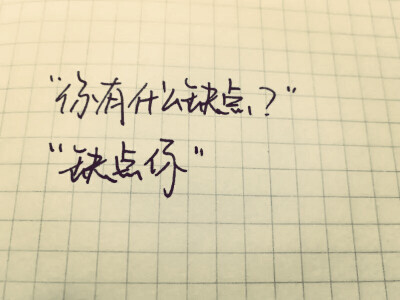 "你有什么缺点?"
"缺点你"